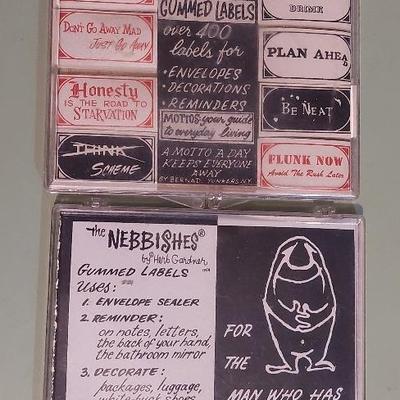 GUMMED LABELS
over 400
labels for
• ENVELOPES
• DECORATIONS
• REMINDERS
MOTTOS your guide
to everyday living
A MOTTO A DAY
KEEPS EVERYONE
AWAY
BY BERNAD YONKERS N.Y.
DON'T GO AWAY MAD
JUST GO AWAY
HONESTY
IS THE ROAD TO
STARVATION
THINK
SCHEME
DRINK
PLAN AHEAD
BE NEAT
FLUNK NOW
Avoid The Rush Later
The NEBBISHES®
by Herb Gardner
GUMMED LABELS
USES:
1. ENVELOPE SEALER
2. REMINDER:
on notes, letters,
the back of your hand,
the bathroom mirror
3. DECORATE:
packages, luggage,
white-buck shoes
FOR
THE
MAN WHO HAS